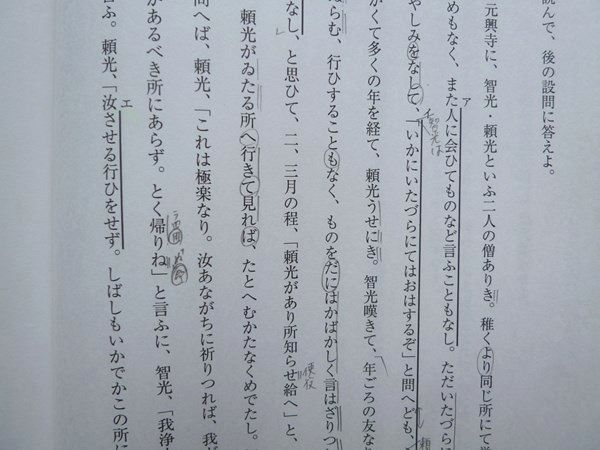 読んで、後の設問に答えよ。
元興寺に、智光・頼光といふ二人の僧ありき。稚くより同じ所にて
めもなく、また人に会ひてものなど言ふこともなし。ただいたづらに
ア
やしみをなして、「いかにいたづらにてはおはするぞ」と問へども、
智光は
がくて多くの年を経て、頼光うせにき。智光嘆きて、「年ごろの友な
らむ、行ひすることもなく、ものをだにはかばかしく言はざりつ
なし」と思ひて、二、三月の程、「頼光があり所知らせ給へ」と、
使役
頼光がゐたる所へ行きて見れば、たとへむかたなくめでたし。
問へば、頼光、「これは極楽なり。汝あながちに祈りつれば、我が
があるべき所にあらず。とく帰りね」と言ふに、智光、「我浄
ふ。頼光、「汝させる行ひをせず。しばしもいかでかこの所に
エ